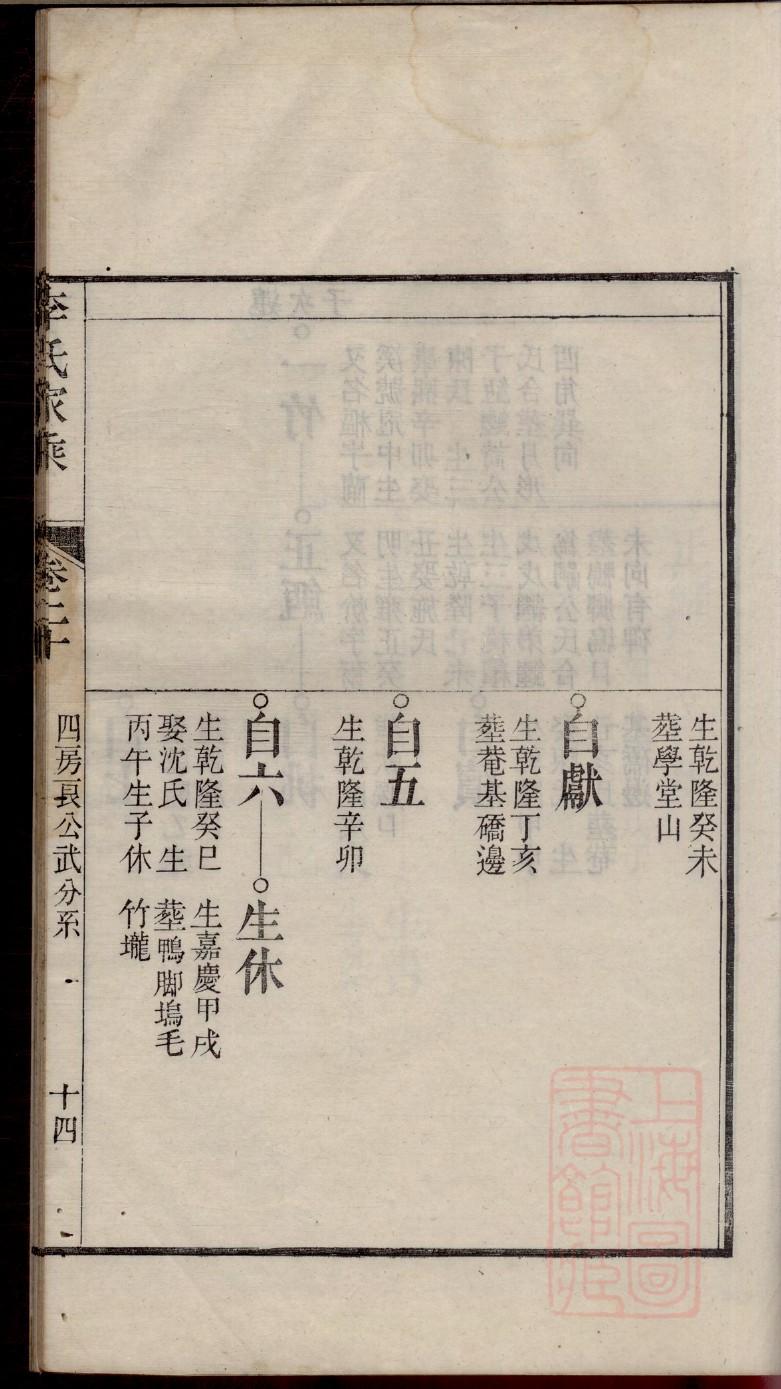 生乾隆癸未
塟學堂山
自獻
生乾隆丁亥
塟菴基礄邊
自五
生乾隆辛卯
自六
生乾隆癸巳
娶沈氏 生
丙午生子休
生休
生嘉慶甲戌
塟鴨脚塢毛
竹壠
李氏家乘
卷二十
四房長公武分系
十四
上海圖書館藏